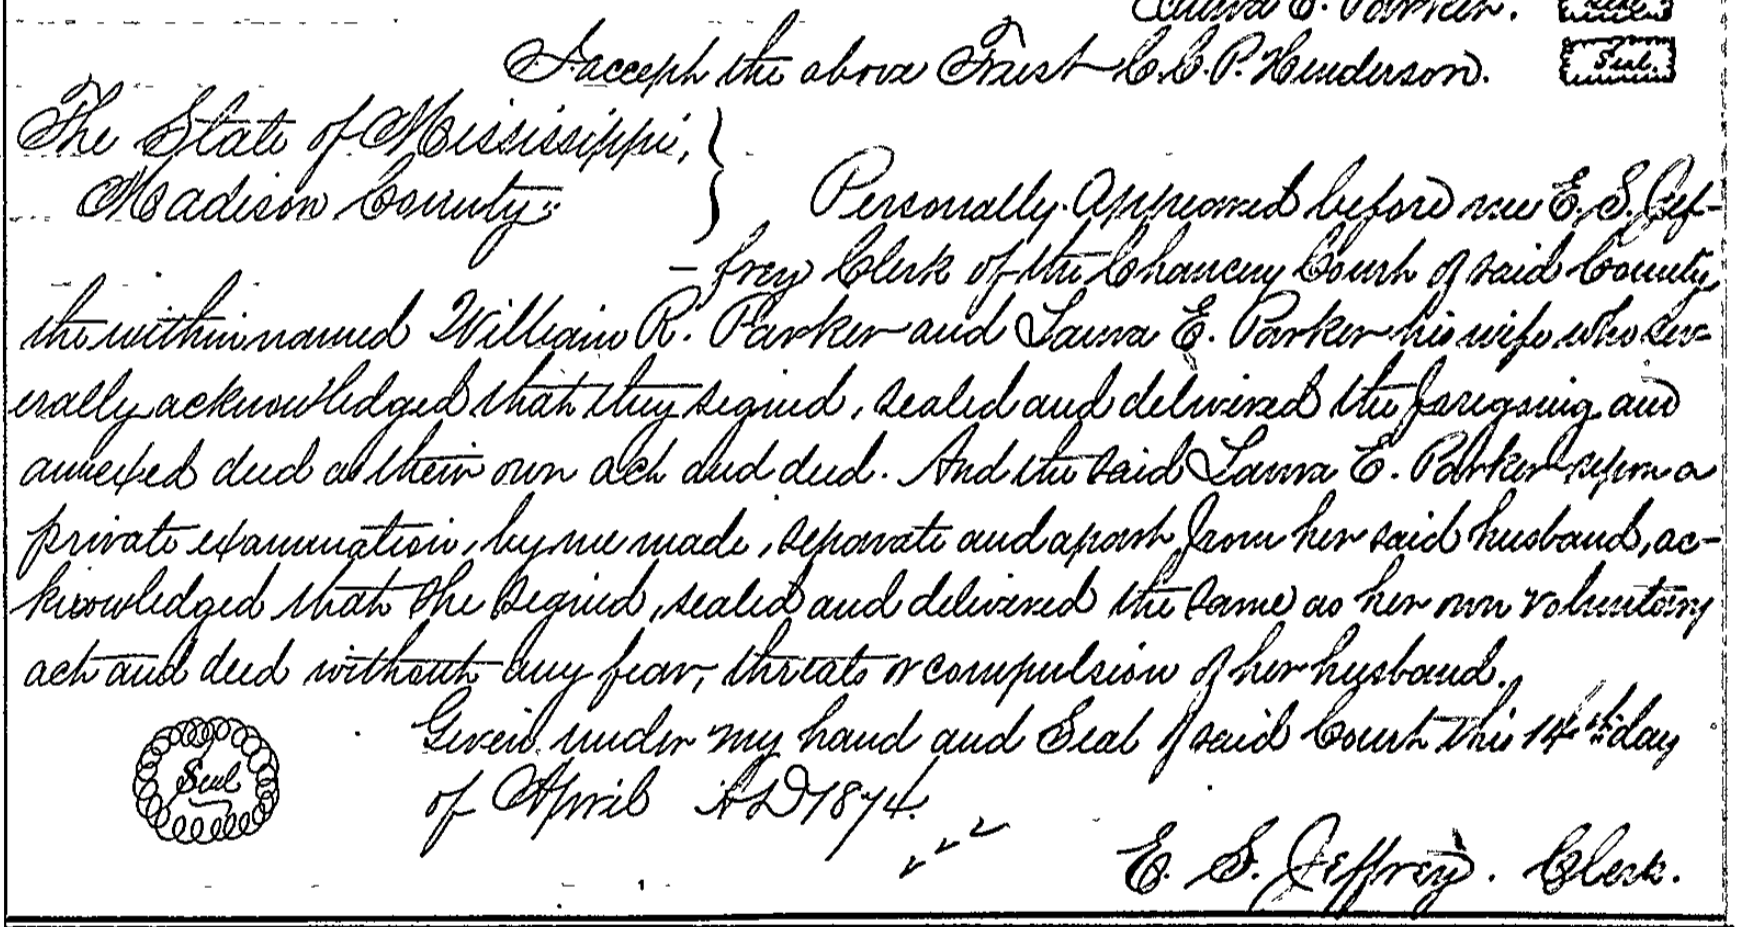 Laura E. Parker. Seal
I accept the above Trust C.C.P. Henderson. Seal.
The State of Mississippi,
Madison County.
Personally appeared before me E. S. Jef-
-frey Clerk of the Chancery Court of said County
the within named William R. Parker and Laura E. Parker his wife who sev-
erally acknowledged that they signed, sealed and delivered the foregoing and
annexed deed as their own act and deed. And the said Laura E. Parker upon a
private examination, by me made, separate and apart from her said husband, ac-
knowledged that she signed, sealed and delivered the same as her own voluntary
act and deed without any fear, threats or compulsion of her husband.
Given under my hand and Seal of said Court this 14th day
Seal
of April AD 1874.
E. S. Jeffrey. Clerk.